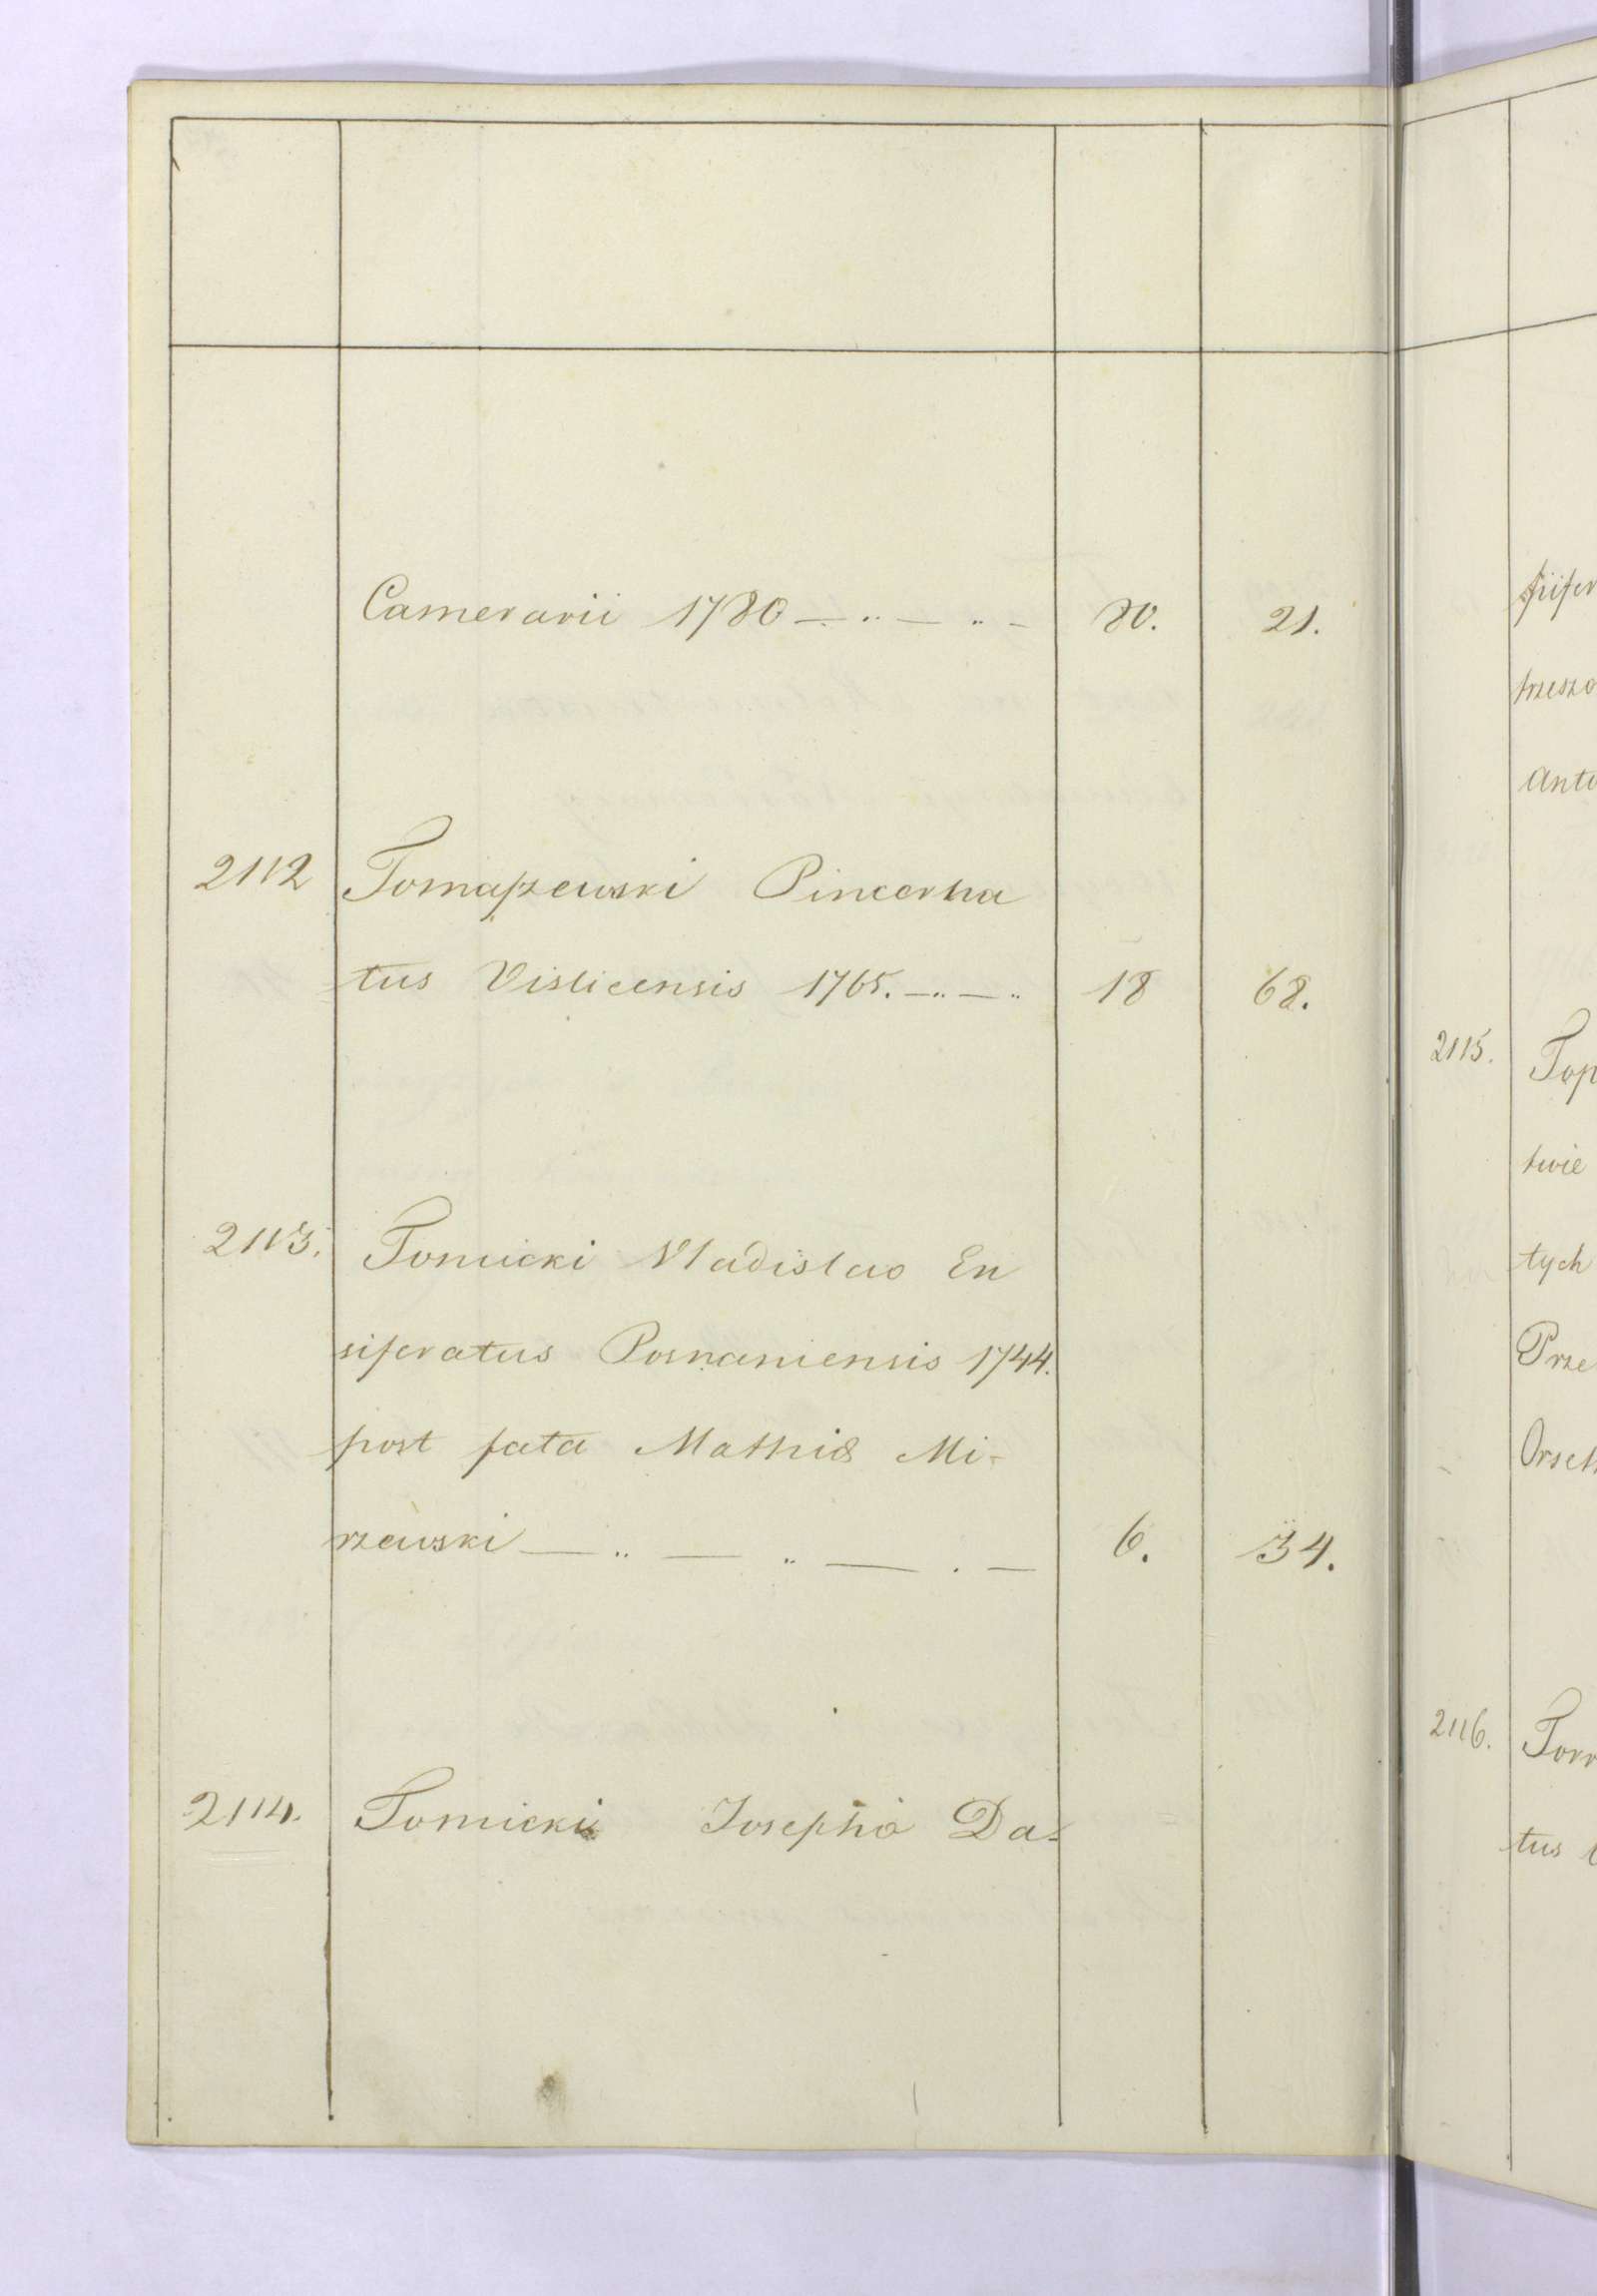 Camerarii 1780 — .. — .. - 80. 21.
2112 Tomaszewski Pincerna
tus Vislicensis 1765. — .. — .. 18 68.
2113. Tomicki Vladislao En
siferatus Posnaniensis 1744.
post fata Mathiæ Mi-
rzewski — .. — .. — . — 6. 34.
2114. Tomicki Josepho Da-
trzesza
Anto
2115. Top
twie
tych
Prze
Orsch
2116. Torr
tus